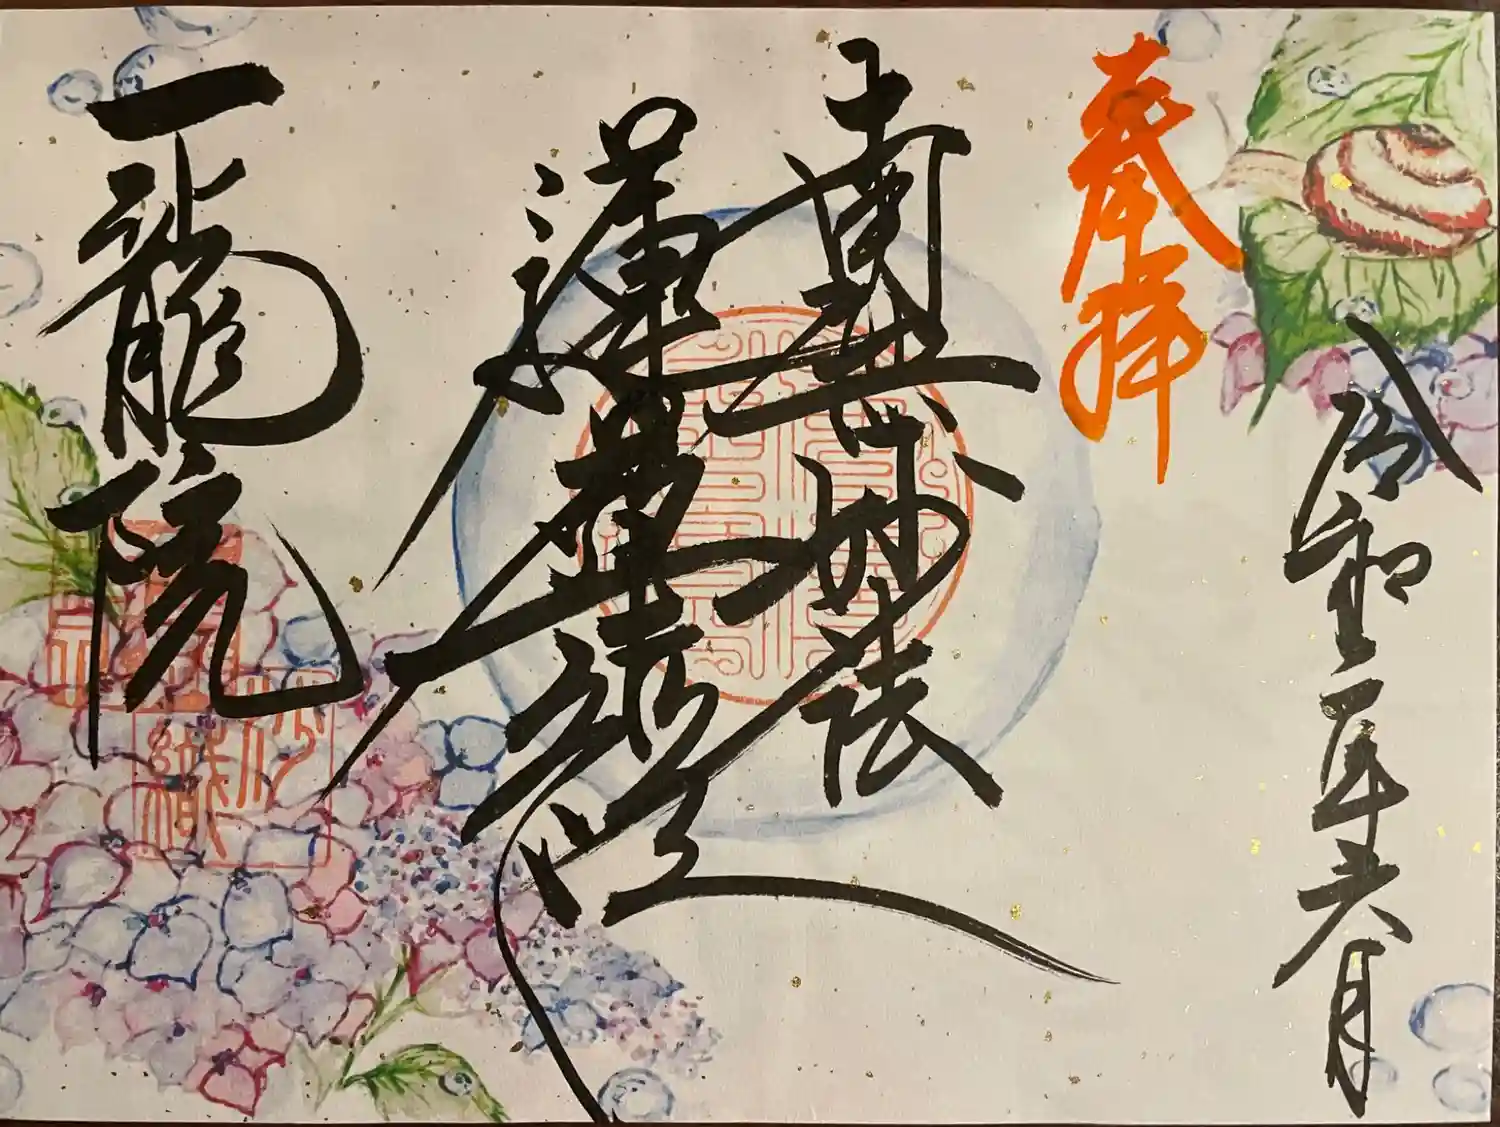 奉拝
令和 年六月
南無妙法
蓮華経
一龍院